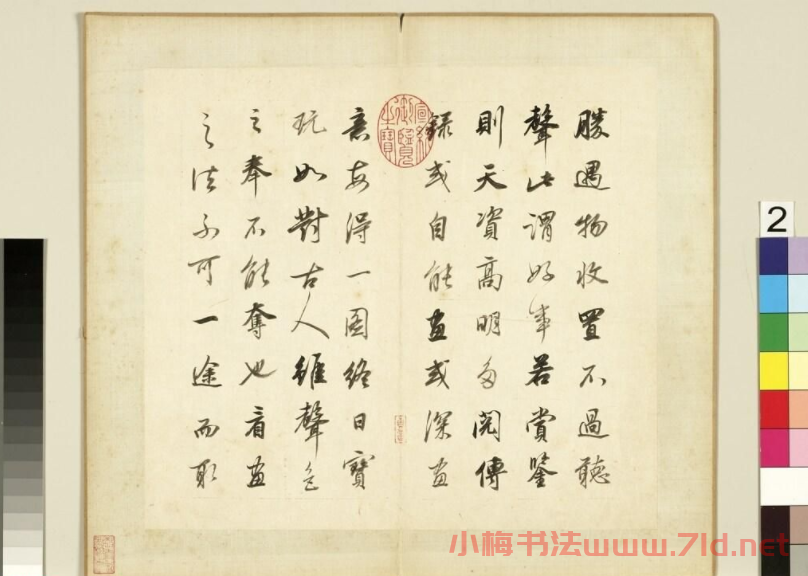 勝遇物收置不過聽
聲此謂好事若賞鑒
則天資高明多閱傳
錄或自能畫或深畫
意每得一圖終日寶
玩如對古人雖聲色
之奉不能奪也看畫
之法不可一途而取
宣統御覽之寶
2
小梅书法www.7ld.net